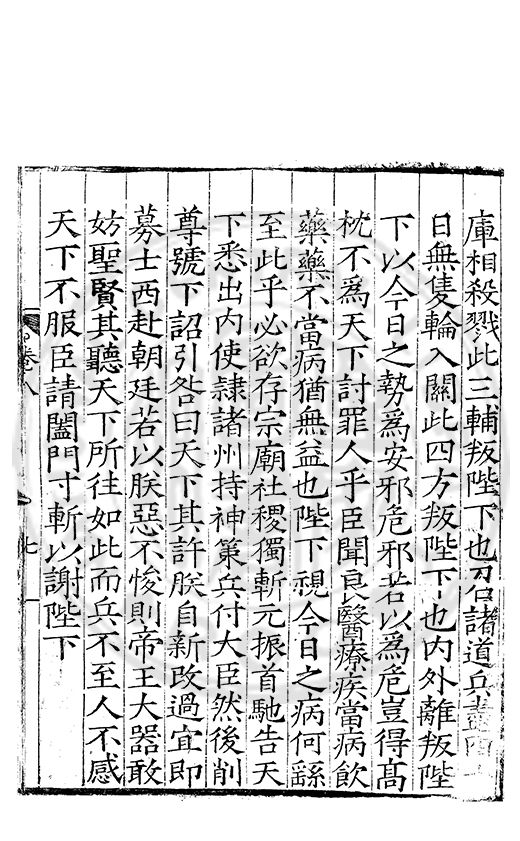 庫相殺戮此三輔叛陛下也召諸道兵盡四十
日無隻輪入關此四方叛陛下也内外離叛陛
下以今日之勢為安邪危邪若以為危豈得髙
枕不為天下討罪人乎臣聞良醫療疾當病飲
藥藥不當病猶無益也陛下視今日之病何繇
至此乎必欲存宗廟社稷獨斬元振首馳告天
下悉出内使隷諸州持神策兵付大臣然後削
尊號下詔引咎曰天下其許朕自新改過宜即
募士西赴朝廷若以朕惡不悛則帝王大器敢
妨聖賢其聽天下所往如此而兵不至人不感
天下不服臣請闔門寸斬以謝陛下
卷八
七